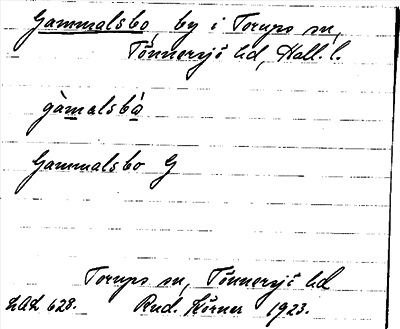 Gammalsbo, by i Torups sn,
Tönnersjö hd, Hall. l.
gàmalsbò
Gammalsbo G
Torups sn, Tönnersjö hd
LAL 628. Rud. Körner 1923.